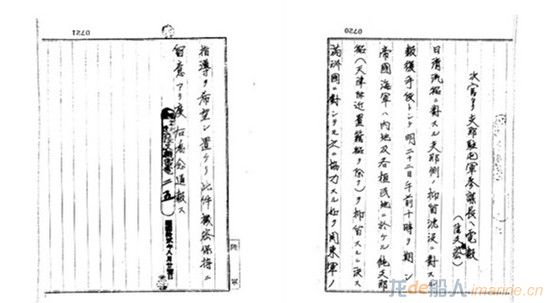 0720
次官ヨリ支那駐屯軍参謀長ヘ電報
日清汽船ニ對スル支那側ノ抑留沈没ニ對スル
報復手段トシテ明二十三日午前十時ヲ期シ
帝國海軍ハ内地及各植民地ニ於ケル純支那
船(天津附近置籍船ヲ除ク)ヲ抑留スルニ決ス
満洲國ニ對シテモ之ニ協力スル如ク関東軍ノ
0721
指導ヲ希望シ置ケリ此件機密保持ニ
留意アリ度右為念通報ス
電二五
龙de船人 imarine.cn